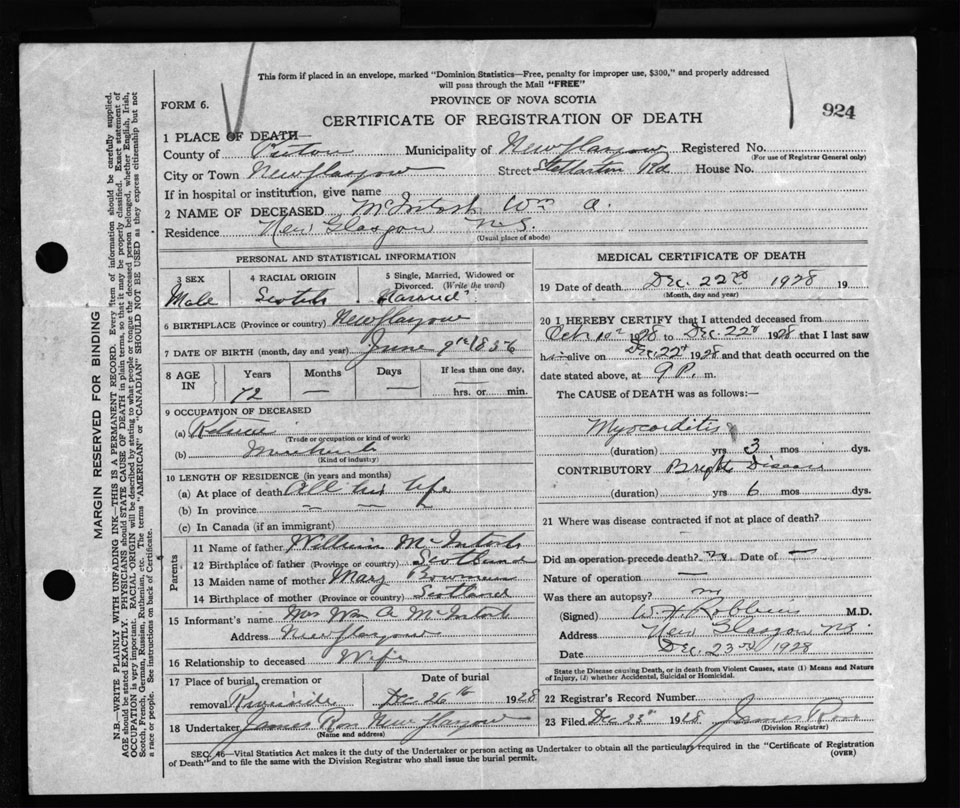 This form if placed in an envelope, marked "Dominion Statistics—Free, penalty for improper use, $300," and properly addressed
will pass through the Mail "FREE"
FORM 6.
PROVINCE OF NOVA SCOTIA
924
CERTIFICATE OF REGISTRATION OF DEATH
1 PLACE OF DEATH—
County of Pictou Municipality of New Glasgow Registered No.
(For use of Registrar General only)
City or Town New Glasgow Street Stellarton Rd House No.
If in hospital or institution, give name
2 NAME OF DECEASED McIntosh Wm A.
Residence New Glasgow N.S.
(Usual place of abode)
PERSONAL AND STATISTICAL INFORMATION
3 SEX 4 RACIAL ORIGIN 5 Single, Married, Widowed or
Divorced. (Write the word)
Male Scotch Married
6 BIRTHPLACE (Province or country) New Glasgow
7 DATE OF BIRTH (month, day and year) June 9th 1856
8 AGE IN Years Months Days If less than one day,
72 — — hrs. or min.
9 OCCUPATION OF DECEASED
(a) Retired
(Trade or occupation or kind of work)
(b) Merchant
(Kind of industry)
10 LENGTH OF RESIDENCE (in years and months)
(a) At place of death All his life
(b) In province — — —
(c) In Canada (if an immigrant)
Parents
11 Name of father William McIntosh
12 Birthplace of father (Province or country) Scotland
13 Maiden name of mother Mary
14 Birthplace of mother (Province or country) Scotland
15 Informant's name Mrs Wm A McIntosh
Address New Glasgow
16 Relationship to deceased Wife
17 Place of burial, cremation or Date of burial
removal Riverside Dec 26th 1928
18 Undertaker James Ross New Glasgow
(Name and address)
MEDICAL CERTIFICATE OF DEATH
19 Date of death Dec. 22nd 1928 19
(Month, day and year)
20 I HEREBY CERTIFY that I attended deceased from
Oct 1928 to Dec. 22nd 1928 that I last saw
him alive on Dec. 22nd 1928 and that death occurred on the
date stated above, at 9 P. m.
The CAUSE of DEATH was as follows:—
Myocarditis
(duration) yrs 3 mos dys.
CONTRIBUTORY Brights Disease
(duration) yrs 6 mos dys.
21 Where was disease contracted if not at place of death?
Did an operation precede death? no Date of —
Nature of operation —
Was there an autopsy? no
(Signed) W. H. Robbins M.D.
Address New Glasgow N.S.
Date Dec. 23rd 1928
State the Disease Causing Death, or in death from Violent Causes, state (1) Means and Nature
of Injury, (2) whether Accidental, Suicidal or Homicidal.
22 Registrar's Record Number
23 Filed Dec 1928 James Ross
(Division Registrar)
SEC. 46—Vital Statistics Act makes it the duty of the Undertaker or person acting as Undertaker to obtain all the particulars required in the "Certificate of Registration
of Death" and to file the same with the Division Registrar who shall issue the burial permit. (OVER)
MARGIN RESERVED FOR BINDING
N.B.—WRITE PLAINLY WITH UNFADING INK—THIS IS A PERMANENT RECORD. Every item of information should be carefully supplied.
AGE should be stated EXACTLY. PHYSICIANS should STATE CAUSE OF DEATH in plain terms, so that it may be properly classified. Exact statement of
OCCUPATION is very important. RACIAL ORIGIN will be described by stating to what people or tongue the deceased person belonged, whether English, Irish,
Scotch, French, German, Russian, Ruthenian, etc. The terms "AMERICAN" or "CANADIAN" SHOULD NOT BE USED as they express citizenship but not
a race or people. See instructions on back of Certificate.